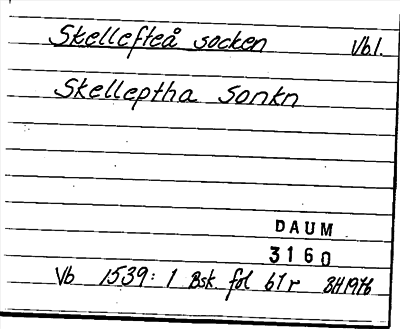 Skellefteå socken Vbl.
Skelleptha Sonkn
DAUM
3160
Vb 1539: 1 Bsk. fol 61 r BH 1976